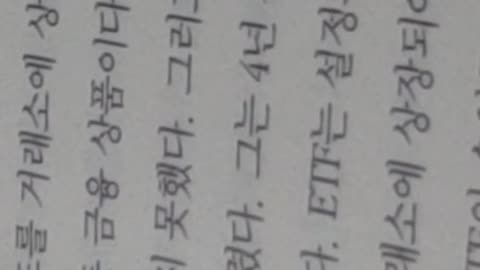 를 거래소에 상
금융 상품이다
못했다. 그러
렀다. 그는 4년
다. ETF는 설정
래소에 상장되어